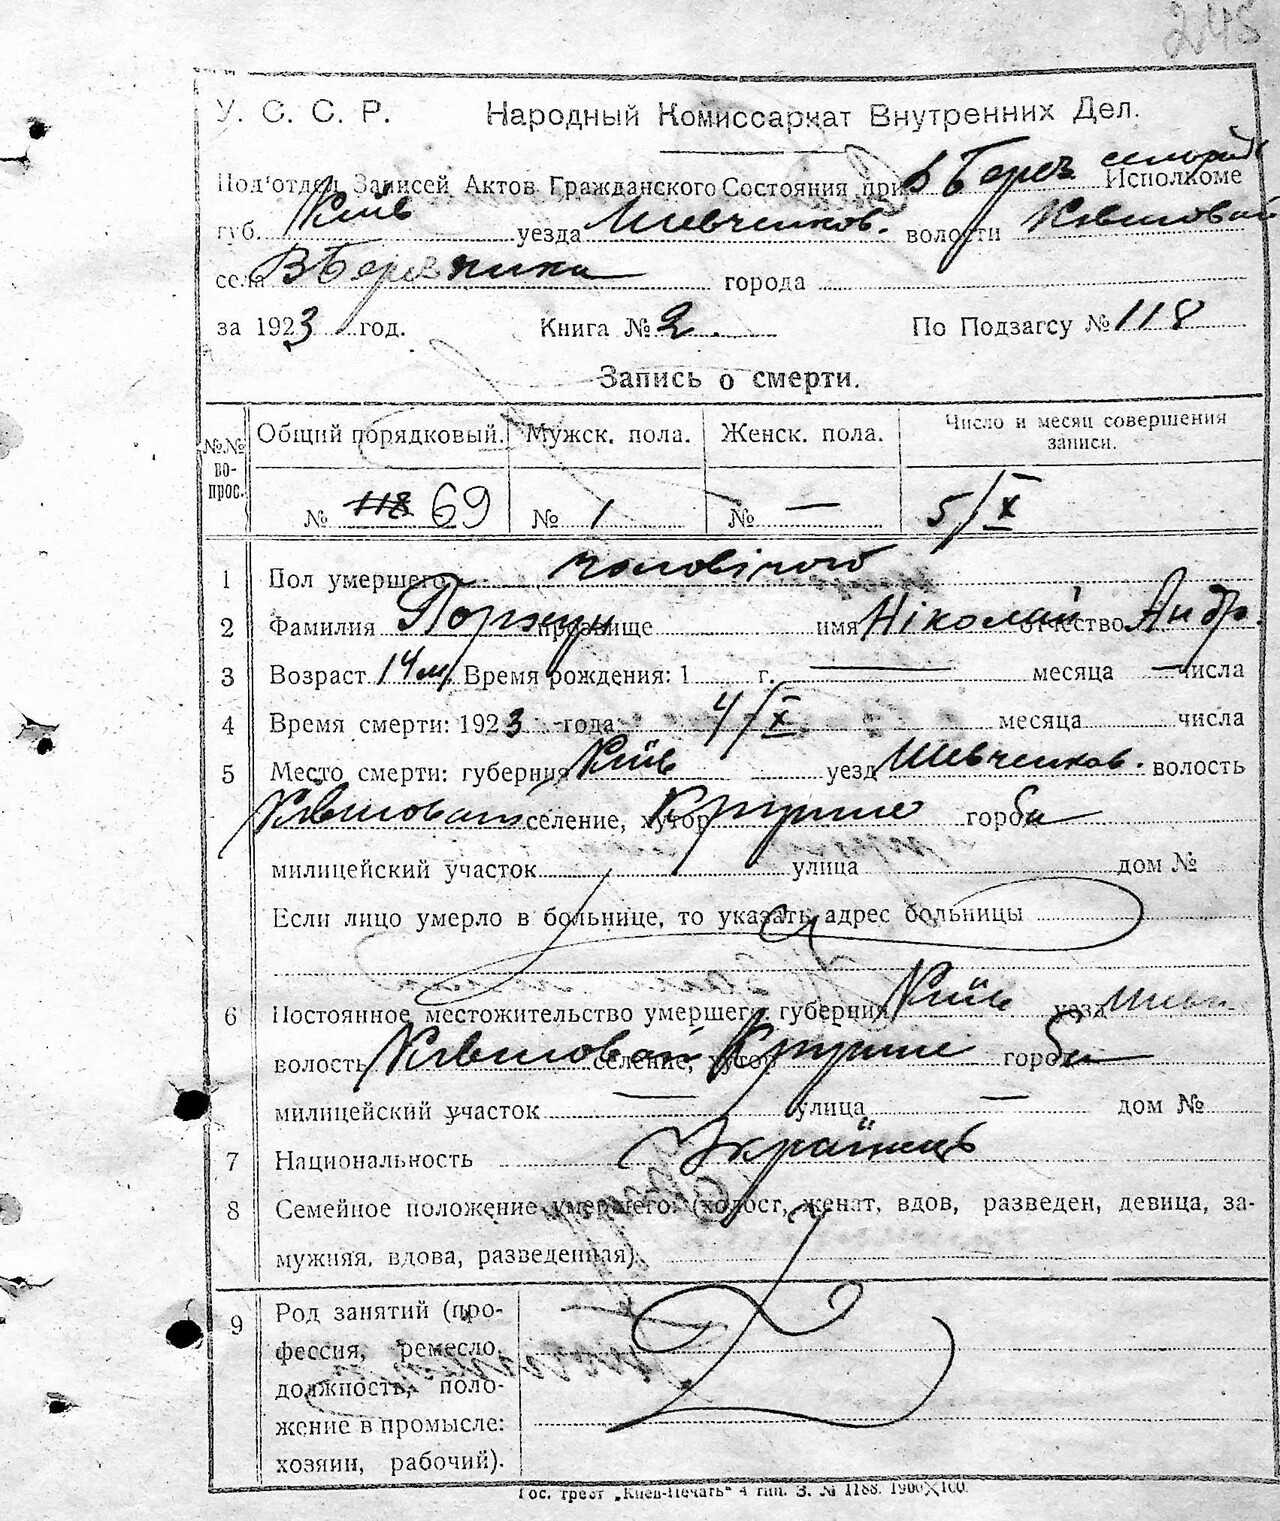 245
У. С. С. Р. Народный Комиссариат Внутренних Дел.
Под'отдел Записей Актов Гражданского Состояния при В Берез сельраді Исполкоме
губ. Київ уезда Шевченков. волости
села ВБерезянка города
за 1923 год. Книга № 2. По Подзагсу № 118
Запись о смерти.
№№ вопрос. Общий порядковый. Мужск. пола. Женск. пола. Число и месяц совершения записи.
№ 118 69 № 1 № — 5/X
1 Пол умершего чоловічого
2 Фамилия прозвище имя Ніколай отчество Андр.
3 Возраст 14 м. Время рождения: 1 г. — месяца — числа
4 Время смерти: 1923 года 4/X месяца числа
5 Место смерти: губерния Київ уезд Шевченков. волость
селение, хутор город
милицейский участок улица дом №
Если лицо умерло в больнице, то указать адрес больницы
6 Постоянное местожительство умершего: губерния Київ уезд Шевч.
волость селение, хутор город
милицейский участок — улица — дом №
7 Национальность Українець
8 Семейное положение умершего: (холост, женат, вдов, разведен, девица, за-
мужняя, вдова, разведенная)
9 Род занятий (про-
фессия, ремесло,
должность, поло-
жение в промысле:
хозяин, рабочий).
Гос. трест „Киев-Печать“ 4 тип. З. № 1188. 1900×100.